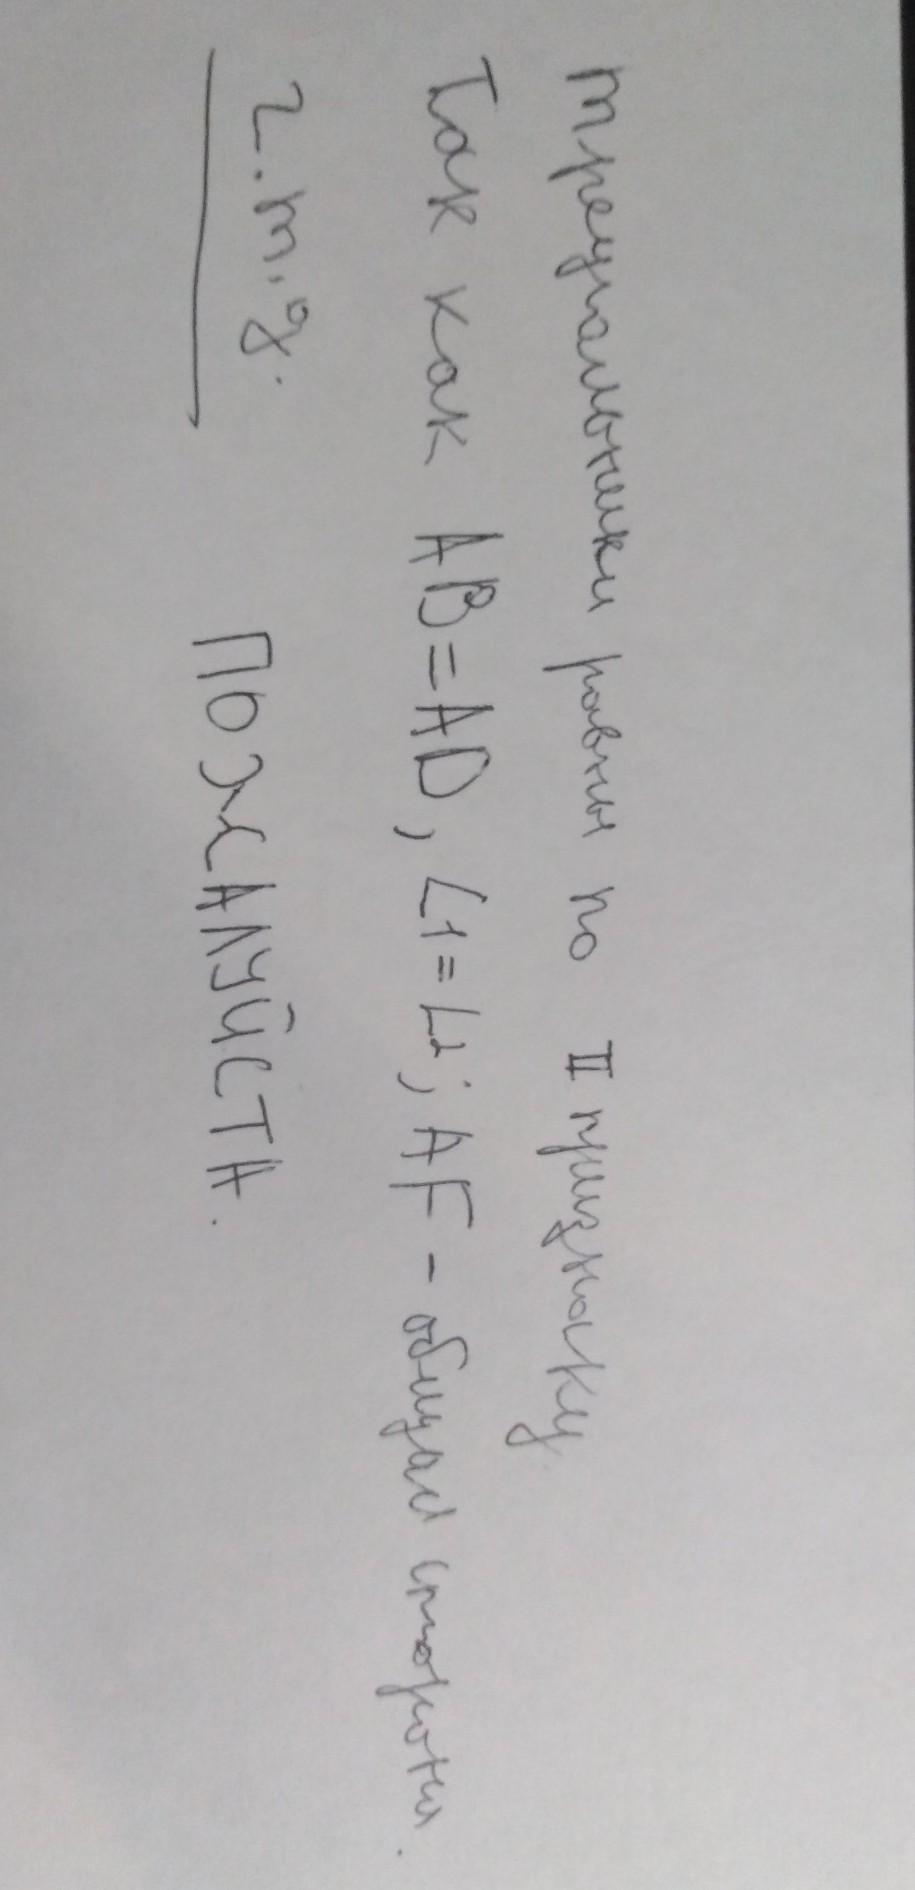 треугольники равны по II признаку.
Так как AB=AD, ∠1=∠2; AF - общая сторона.
г.т.д.
ПОЖАЛУЙСТА.